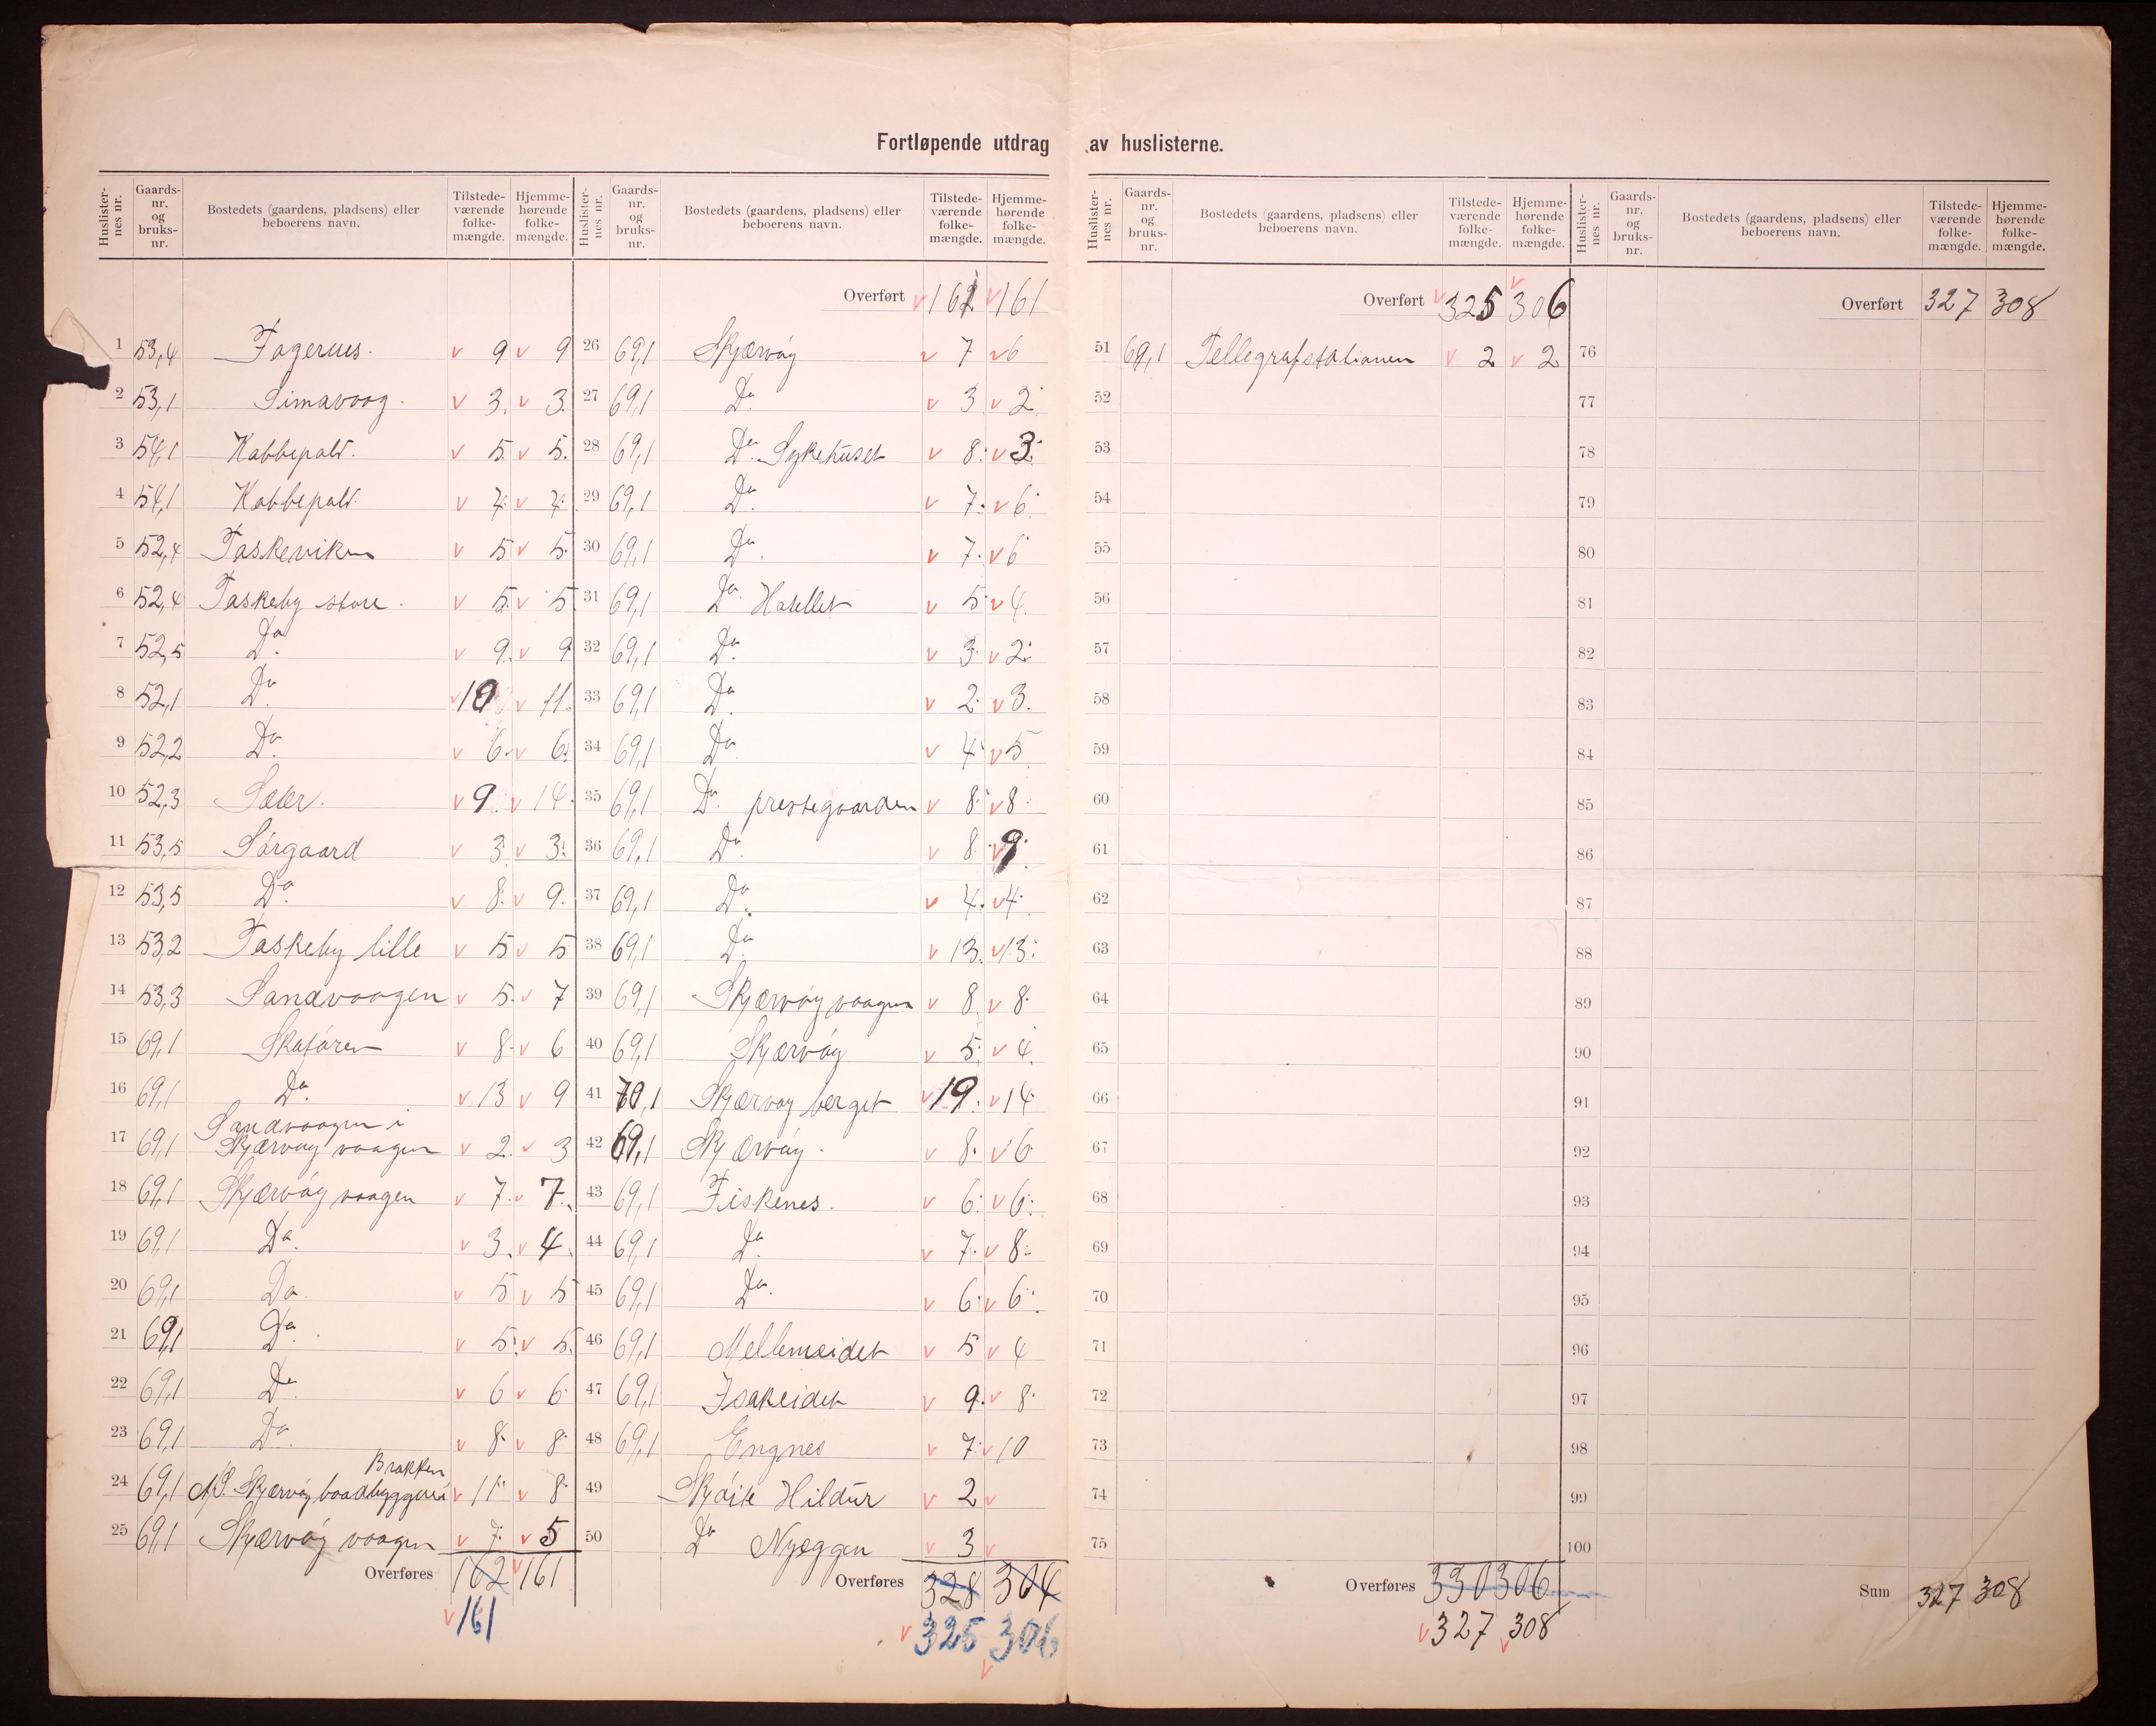 Fortløpende utdrag av huslisterne.
Huslisternes nr. Gaards-nr. og bruks-nr. Bostedets (gaardens, pladsens) eller beboerens navn. Tilstedeværende folkemængde. Hjemmehørende folkemængde.
1 53,4 Fagernes. 9 9
2 53,1 Simavaag. 3. 3.
3 54,1 Kobbepalt. 5. 5.
4 54,1 Kobbepalt. 7. 7.
5 52,4 Taskeviken 5 5.
6 52,4 Taskeby store. 5. 5
7 52,5 Do. 9. 9
8 52,1 Do. 10 11.
9 52,2 Do. 6. 6.
10 52,3 Sæter. 9. 14.
11 53,5 Sörgaard 3. 3.
12 53,5 Do. 8. 9.
13 53,2 Taskeby lille 5 5
14 53,3 Sandvaagen 5. 7
15 69,1 Skatøren 8. 6
16 69,1 Do. 13 9
17 69,1 Sandvaagen i
Skjærvöy vaagen 2. 3
18 69,1 Skjærvöy vaagen 7. 7.
19 69,1 Do. 3. 4.
20 69,1 Do. 5 5
21 69,1 Do. 5. 5.
22 69,1 Do. 6 6
23 69,1 Do. 8. 8.
Brakken
24 69,1 Skjærvöy baadbyggeri 11. 8.
25 69,1 Skjærvöy vaagen 7. 5
Overføres 162 161
161
Huslisternes nr. Gaards-nr. og bruks-nr. Bostedets (gaardens, pladsens) eller beboerens navn. Tilstedeværende folkemængde. Hjemmehørende folkemængde.
Overført 161 161
26 69,1 Skjærvöy 7 6
27 69,1 Do. 3 2.
28 69,1 Do. Sykehuset 8. 3.
29 69,1 Do. 7. 6.
30 69,1 Do. 7. 6
31 69,1 Do. Hotellet 5 4.
32 69,1 Do. 3. 2.
33 69,1 Do. 2. 3.
34 69,1 Do. 4 5
35 69,1 Do. prestegaarden 8. 8.
36 69,1 Do. 8. 9.
37 69,1 Do. 4. 4.
38 69,1 Do. 13. 13.
39 69,1 Skjærvöy vaagen 8 8.
40 69,1 Skjærvöy 5. 4.
41 70,1 Skjærvöy berget 19. 14
42 69,1 Skjærvöy. 8. 6
43 69,1 Fiskenes. 6. 6.
44 69,1 Do. 7. 8.
45 69,1 Do. 6. 6.
46 69,1 Mellemeidet 5 4
47 69,1 Isakeidet 9. 8.
48 69,1 Engnes 7. 10
49 Skjöite Hildur 2
50 Do Nyeggen 3
Overføres 328 304
325 306
Huslisternes nr. Gaards-nr. og bruks-nr. Bostedets (gaardens, pladsens) eller beboerens navn. Tilstedeværende folkemængde. Hjemmehørende folkemængde.
Overført 325 306
51 69,1 Tellegrafstationen 2 2
52
53
54
55
56
57
58
59
60
61
62
63
64
65
66
67
68
69
70
71
72
73
74
75
Overføres 330 306
327 308
Huslisternes nr. Gaards-nr. og bruks-nr. Bostedets (gaardens, pladsens) eller beboerens navn. Tilstedeværende folkemængde. Hjemmehørende folkemængde.
Overført 327 308
76
77
78
79
80
81
82
83
84
85
86
87
88
89
90
91
92
93
94
95
96
97
98
99
100
Sum 327 308